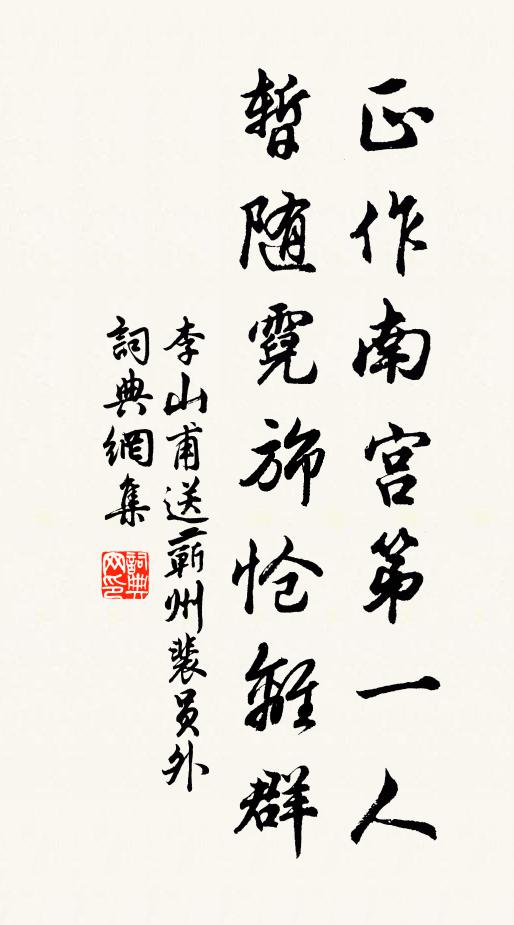 正作南宫第一人
暂随霓旆怆離群
李山甫送蕲州裴员外
詞典網集
詞典網印